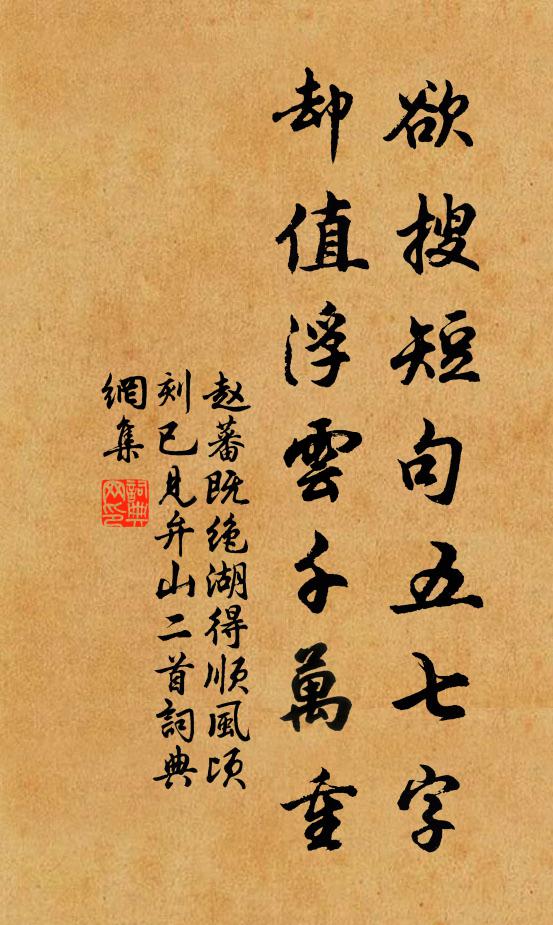 欲搜短句五七字
却值浮雲千萬重
赵蕃既绝湖得顺風頃
刻已見弁山二首詞典
網集
詞典
网印